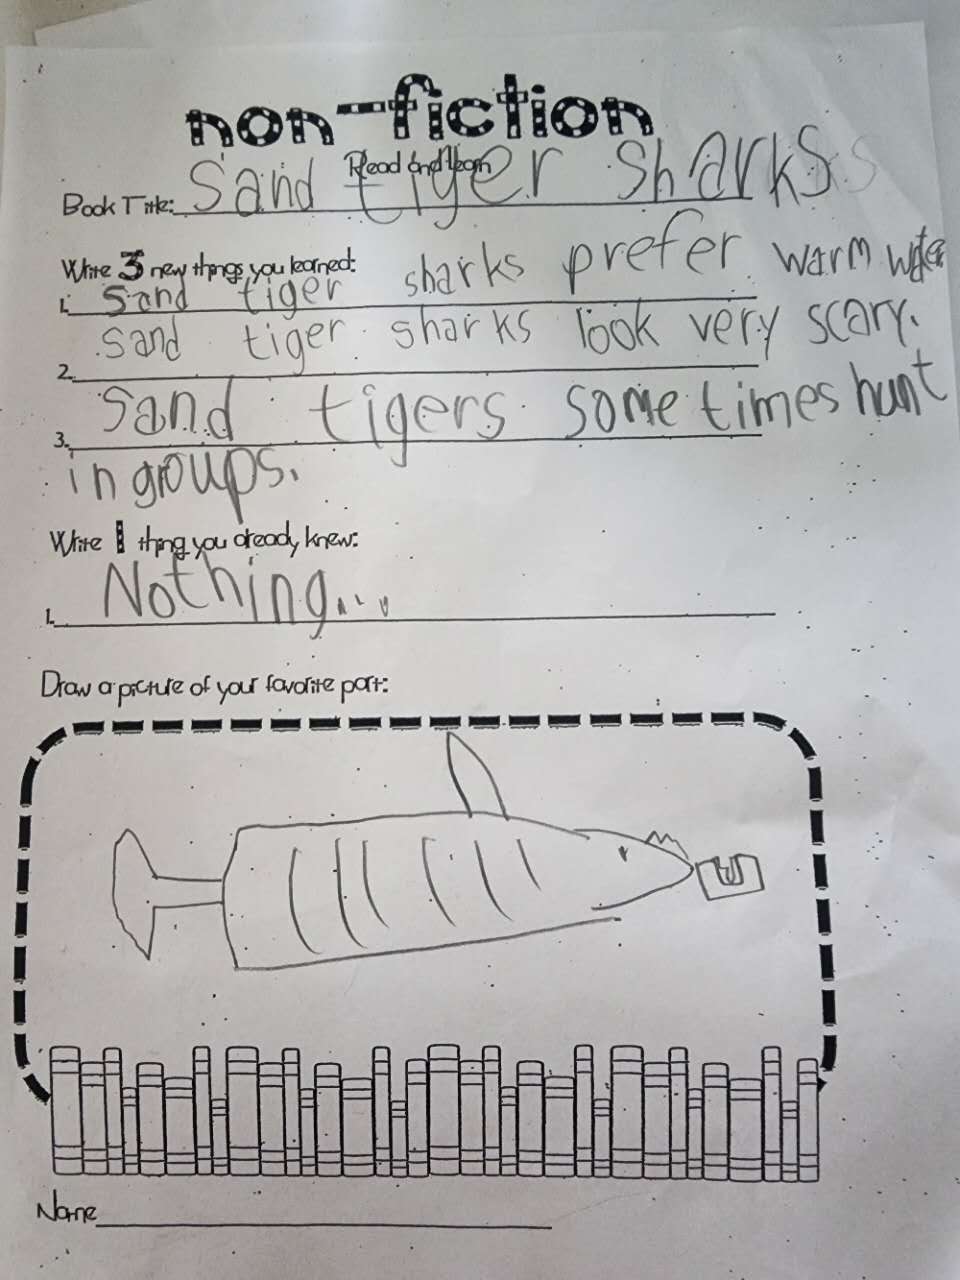 non-fiction
Read and learn
Book Title: Sand tiger Sharks
Write 3 new things you learned:
1. Sand tiger sharks prefer warm water
2. sand tiger sharks look very scary.
3. Sand tigers sometimes hunt
in groups.
Write 1 thing you already knew:
1. Nothing...
Draw a picture of your favorite part:
Name